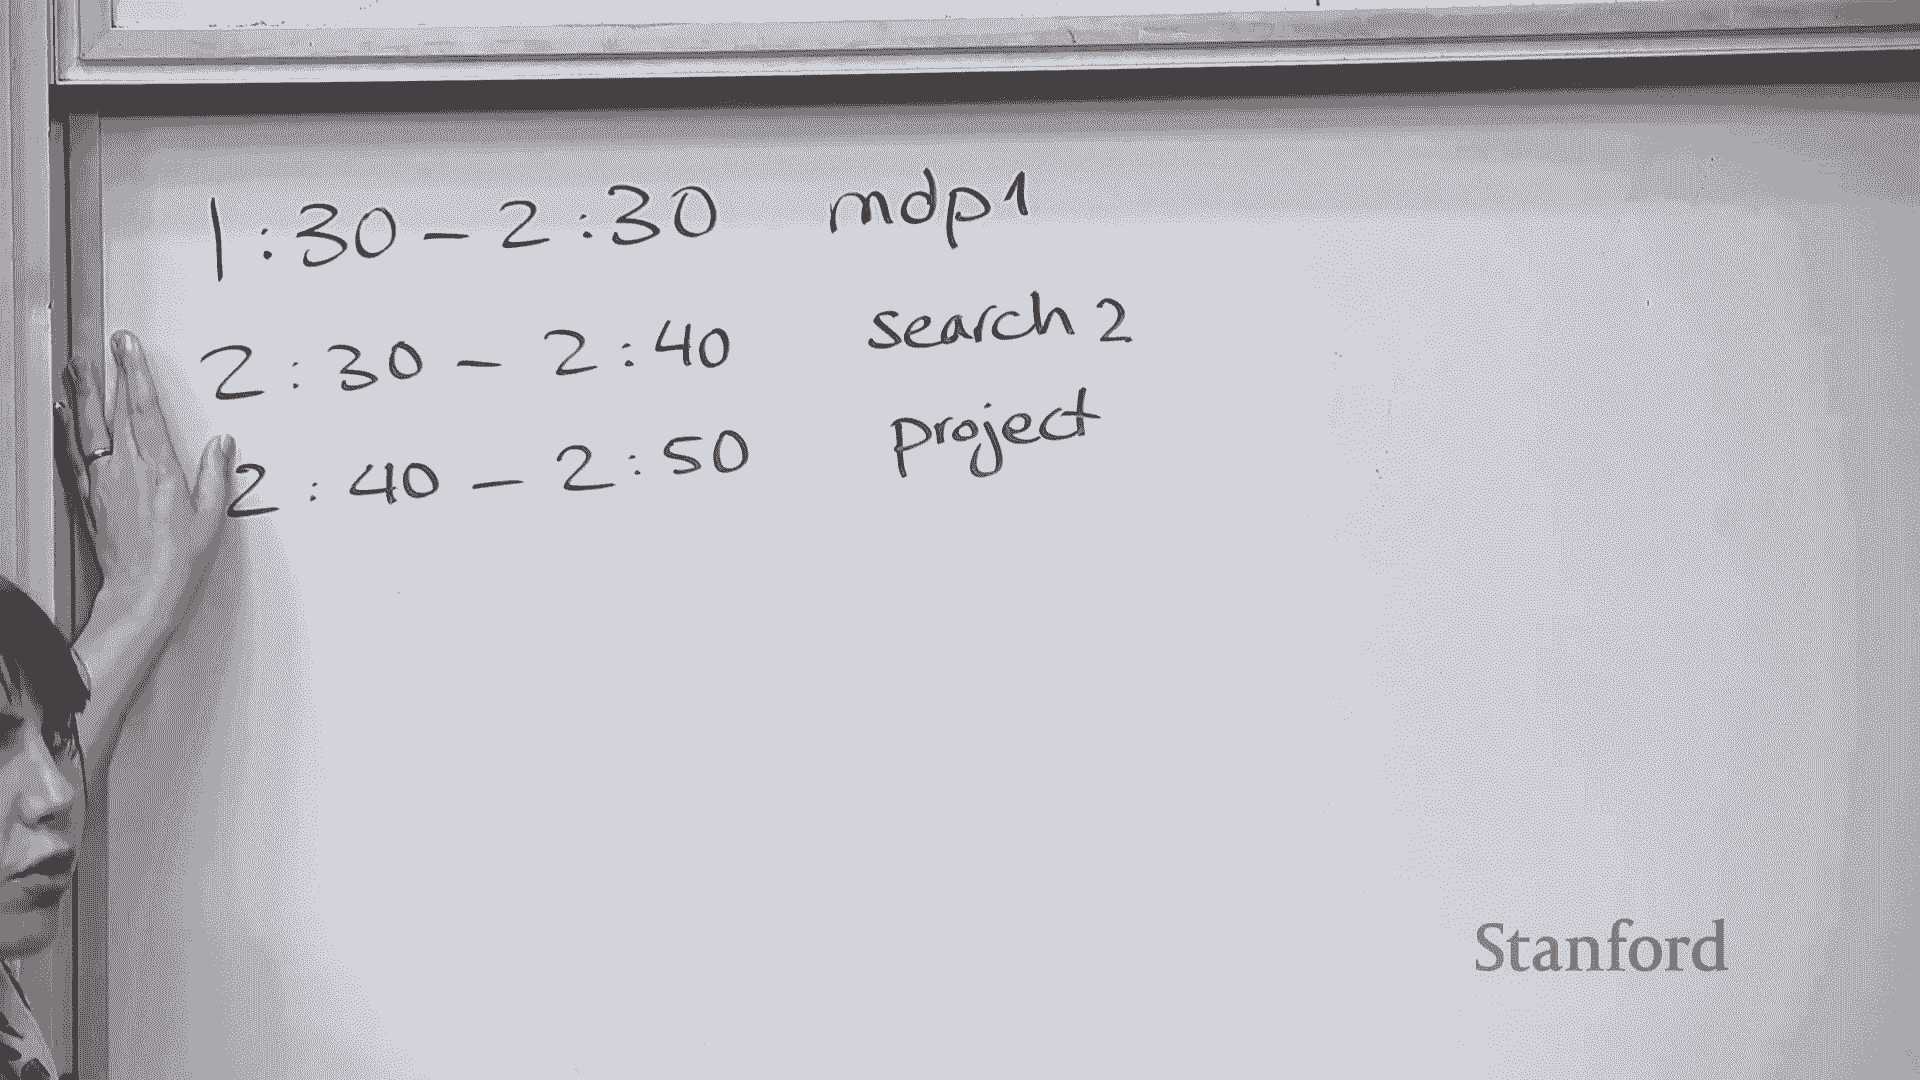 1:30 - 2:30 mdp1
2:30 - 2:40 search 2
2:40 - 2:50 project
Stanford